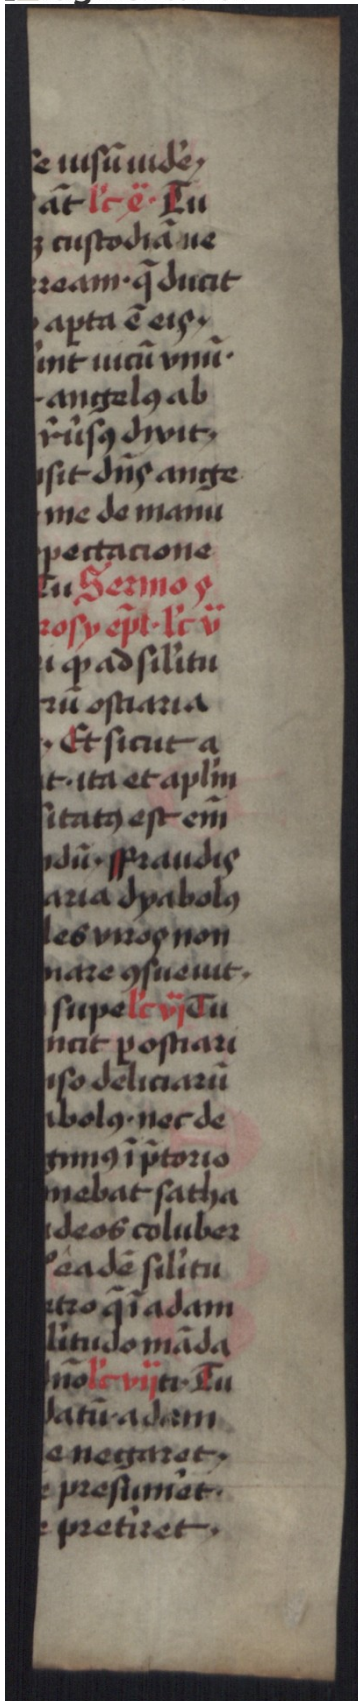 se iusū iudē,
āt lc̄ ē. Tu
ꝫ custodiā ne
rream. q̄ ducit
apta ē eis,
int uicū vnū.
angelꝯ ab
r̄ūsꝯ dixit,
sit dn̄s ange
me de manu
pectacione
Tu Sermo
rosy ep̄i. lc̄ v
i ꝙ ad sil̄itu
rū ostiaria
. Et sicut a
t. ita et apl̄m
sitatꝯ est em̄
dū. ffraudis
aria dyabolꝯ
les viros non
nare ꝯsueuit.
supe lc̄ vj Tu
ncit p ostiari
iso deliciarū
abolꝯ. nec de
gimꝯ ī p̄torio
nebat satha
deos coluber
eadē sil̄itu
tro q̄ ī adam
l̄itudo māda
n̄o lc̄ vij ti. Tu
datū. adam
e negaret.
presūm̄et.
pret̄iret.